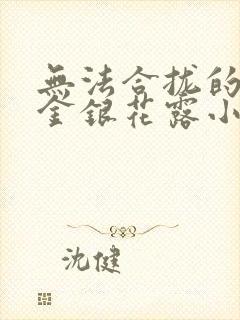 無法合拢的
金銀花露小
沈健